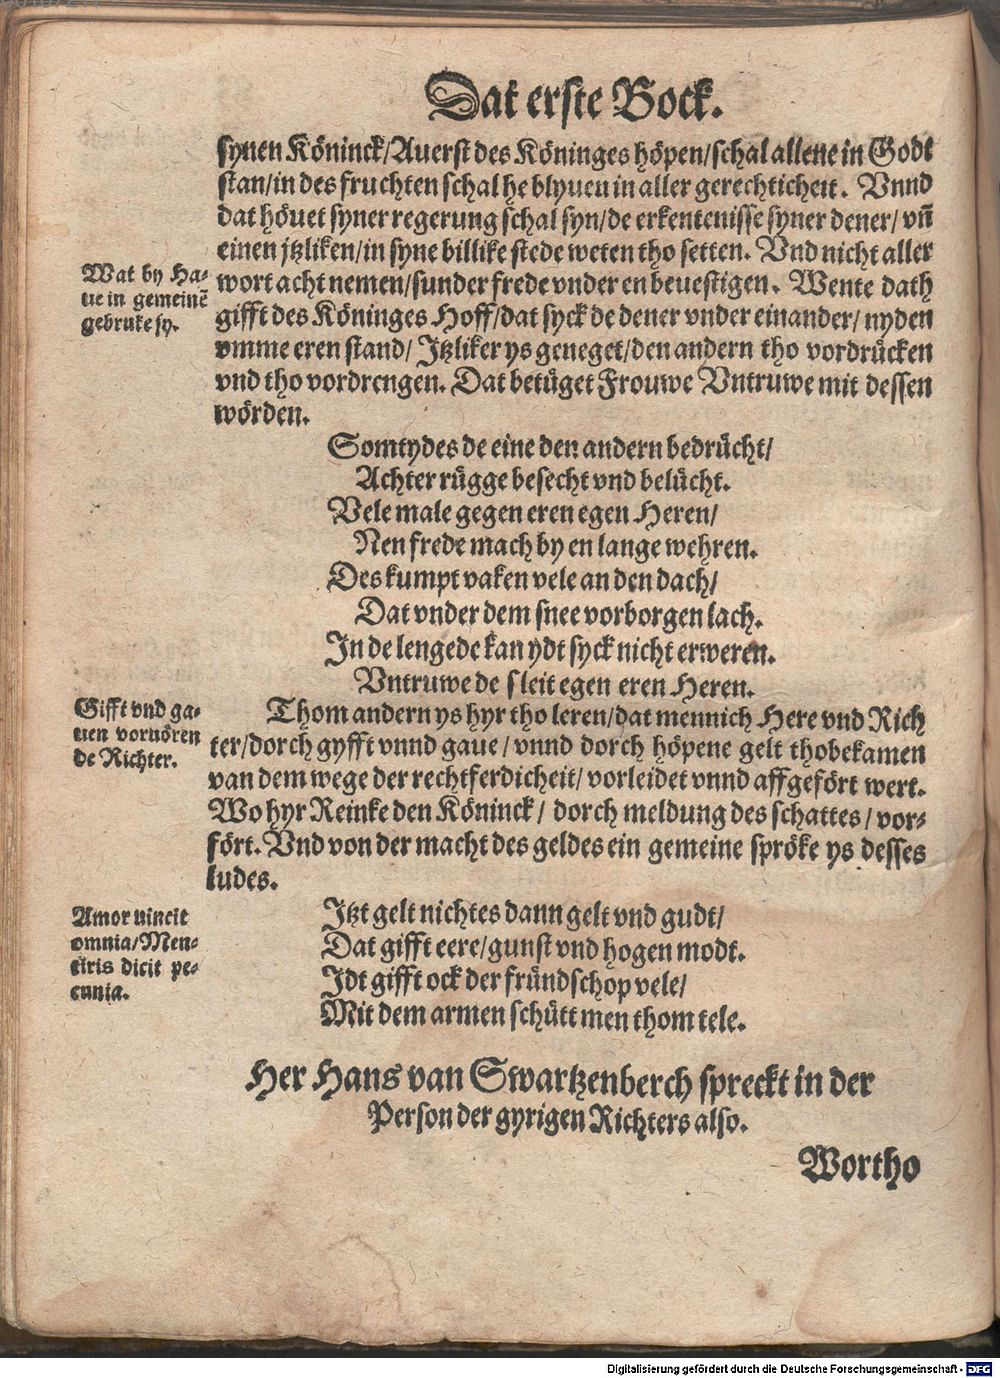 Dat erste Bock.
synen Köninck/Auerst des Köninges höpen/schal allene in Godt
stan/in des fruchten schal he blyuen in aller gerechticheit. Vnnd
dat höuet syner regerung schal syn/de erkentenisse syner dener/vñ
einen jtzliken/in syne billike stede weten tho setten. Vnd nicht aller
wort acht nemen/sunder frede vnder en beuestigen. Wente dath
gifft des Köninges Hoff/dat syck de dener vnder einander/nyden
vmme eren stand/Jtzliker ys geneget/den andern tho vordrücken
vnd tho vordrengen. Dat betüget Frouwe Vntruwe mit dessen
wörden.
Wat by Ha-
ue in gemeinẽ
gebruke sy.
Somtydes de eine den andern bedrücht/
Achter rügge besecht vnd belücht.
Vele male gegen eren egen Heren/
Nen frede mach by en lange wehren.
Des kumpt vaken vele an den dach/
Dat vnder dem snee vorborgen lach.
Jn de lengede kan ydt syck nicht erweren.
Vntruwe de sleit egen eren Heren.
Thom andern ys hyr tho leren/dat mennich Here vnd Rich
ter/dorch gyfft vnnd gaue/vnnd dorch höpene gelt thobekamen
van dem wege der rechtferdicheit/vorleidet vnnd affgefört wert.
Wo hyr Reinke den Köninck/dorch meldung des schattes/vor-
fört. Vnd von der macht des geldes ein gemeine spröke ys desses
ludes.
Gifft vnd ga-
uen vorvören
de Richter.
Jtzt gelt nichtes dann gelt vnd gudt/
Dat gifft eere/gunst vnd hogen modt.
Jdt gifft ock der fründschop vele/
Mit dem armen schütt men thom tele.
Amor uincit
omnia/Men-
tiris dicit pe-
cunia.
Her Hans van Swartzenberch spreckt in der
Person der gyrigen Richters also.
Wortho
Digitalisierung gefördert durch die Deutsche Forschungsgemeinschaft - DFG